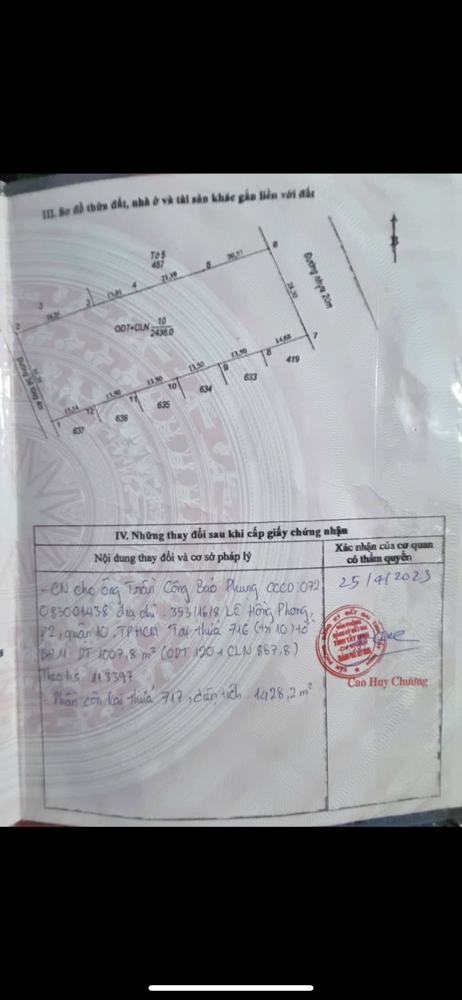 III. Sơ đồ thửa đất, nhà ở và tài sản khác gắn liền với đất
Tờ 5
457
20,57
6
5
21,19
4
13,81
3
3
2
ODT+CLN 10
2438.0
Đường nhựa 20m
24,30
7
14,68
8
419
13,50
9
633
13,50
10
634
13,50
11
635
13,50
12
636
15,14
1
637
IV. Những thay đổi sau khi cấp giấy chứng nhận
Nội dung thay đổi và cơ sở pháp lý
Xác nhận của cơ quan
có thẩm quyền
- CN cho ông Trần Công Bảo Phụng CCCD: 072
083001438 địa chỉ: 353/16/8 LÊ Hồng Phong,
P2, quận 10, TPHCM Tại thửa 716 (tr 10) tờ
DT 1007,8 m² (ODT 120 + CLN 887,8)
Theo hs: 113397
- Phần còn lại thửa 717, diện tích: 1428,2 m²
25/4/2023
Cao Huy Chương